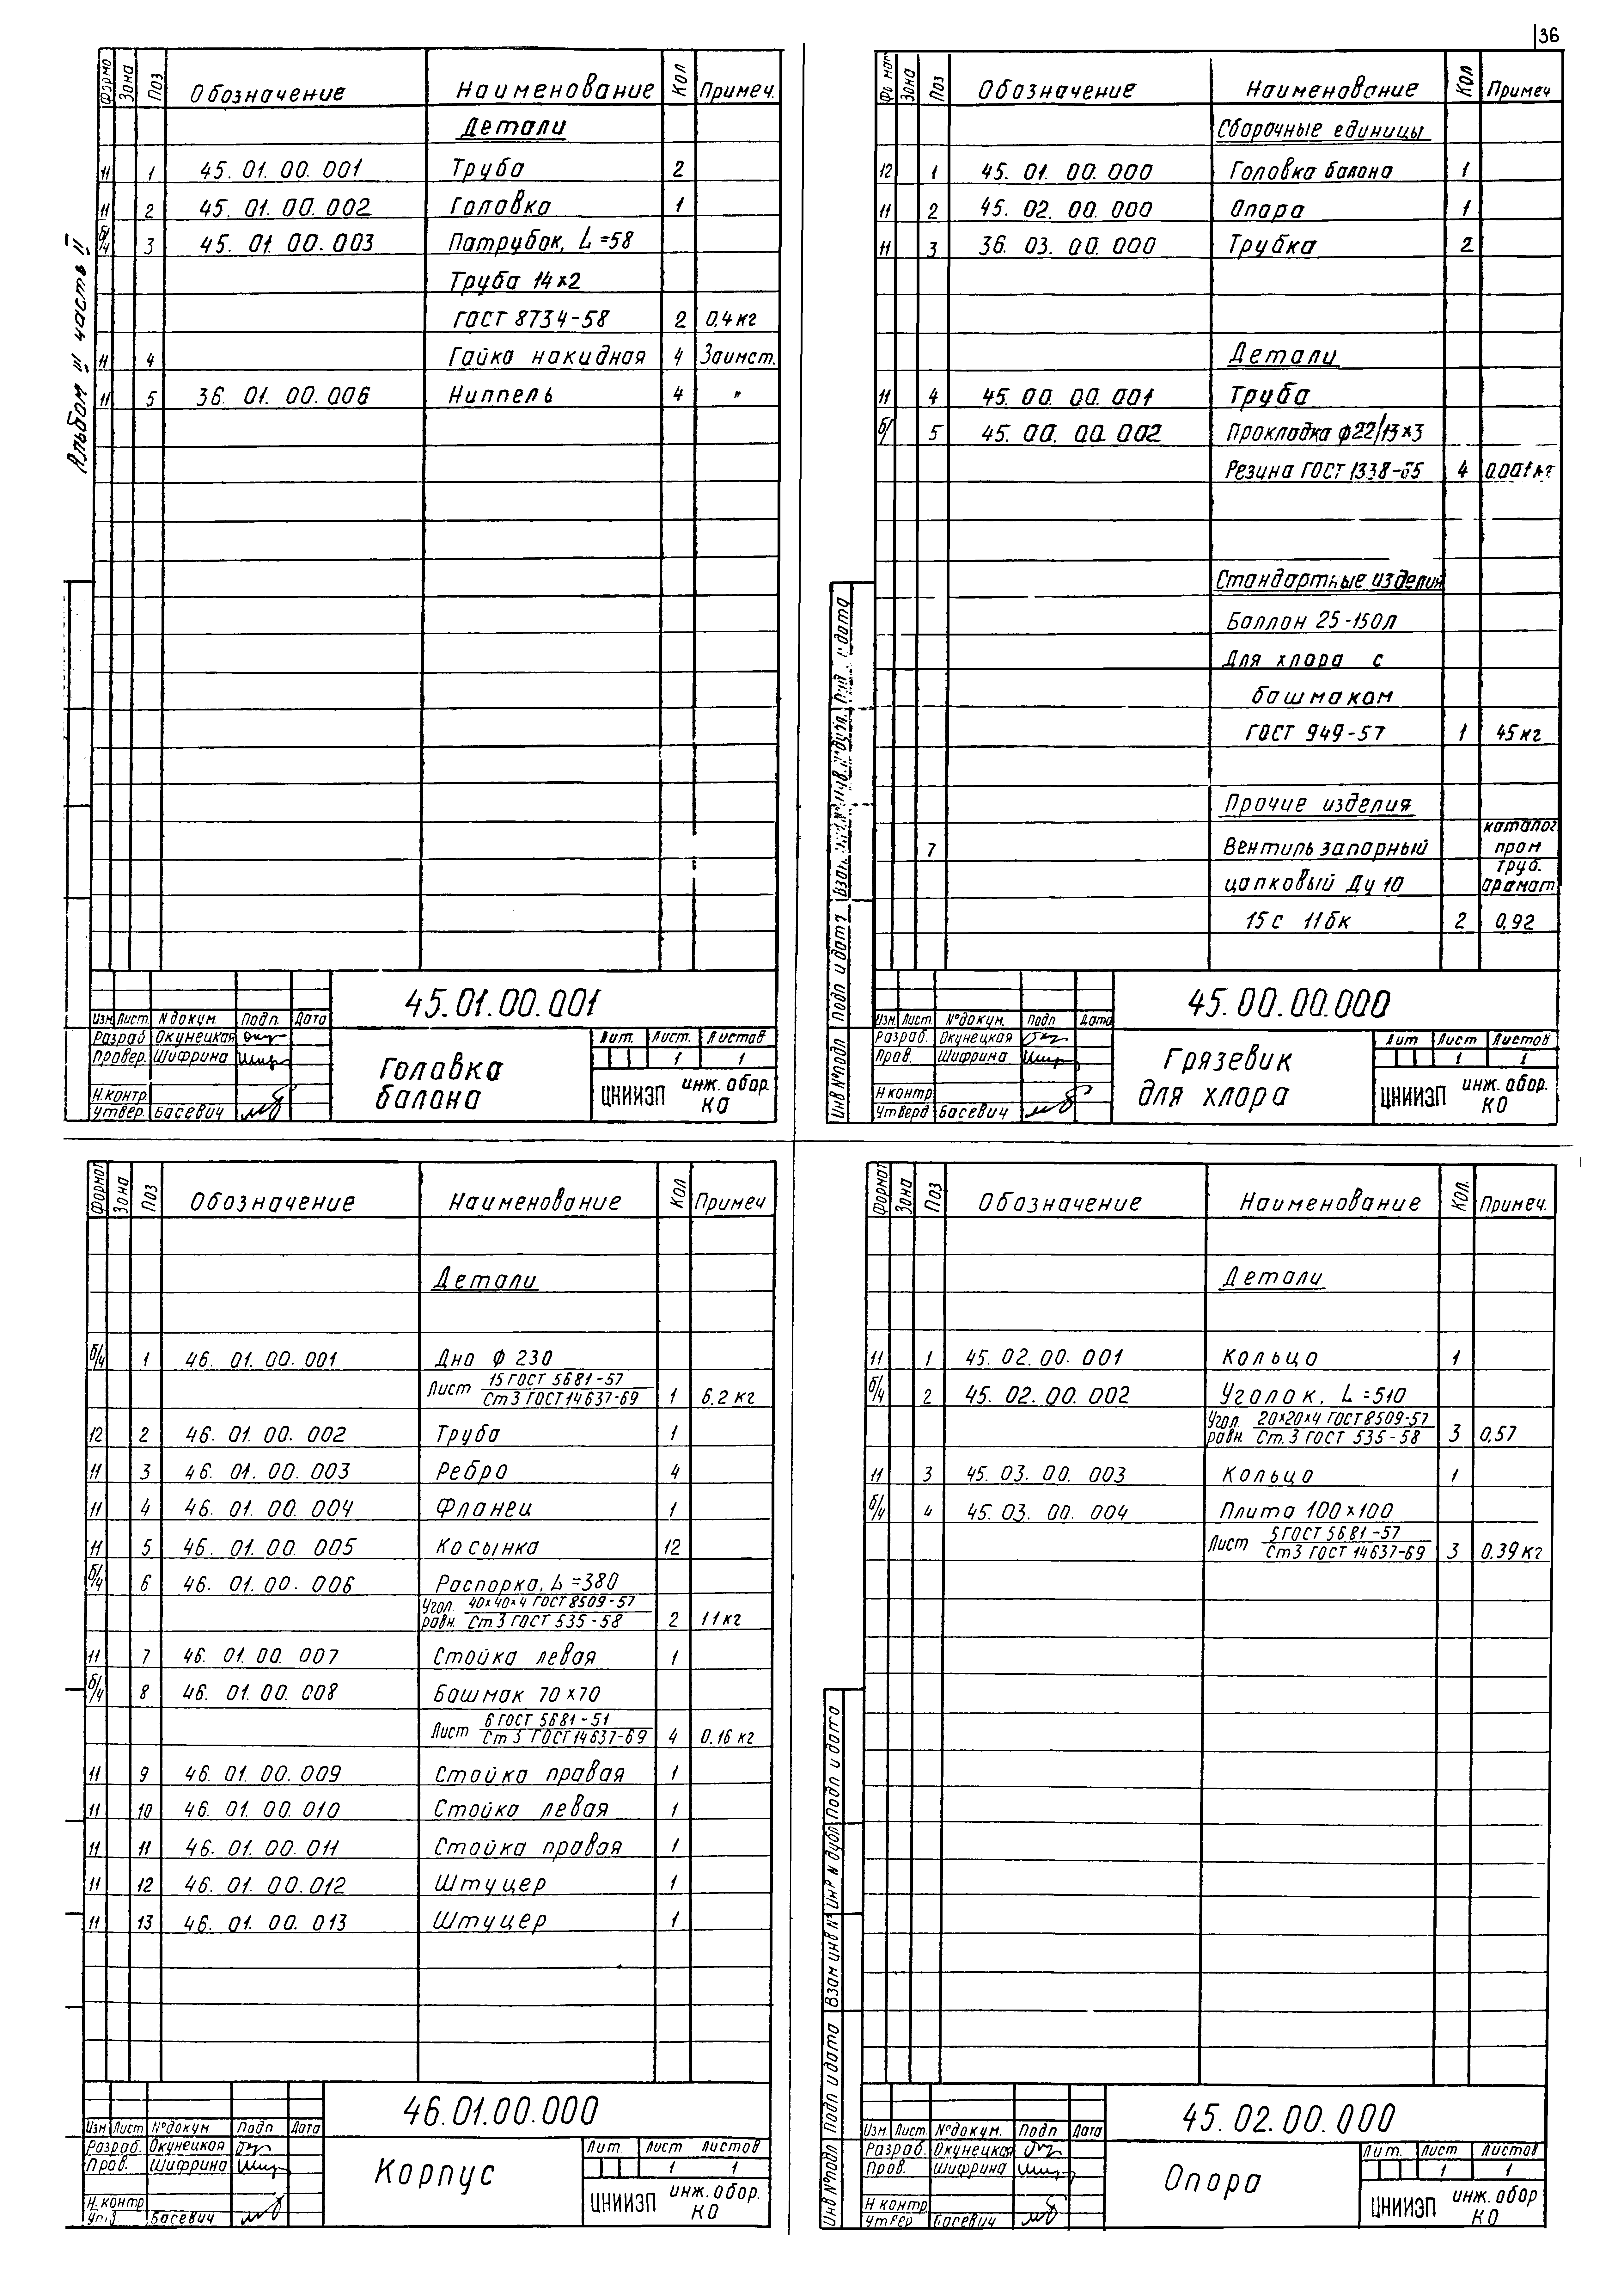 36
Альбом III часть II
Формо Зона Поз Обозначение Наименование Кол Примеч.
Детали
11 1 45. 01. 00. 001 Труба 2
11 2 45. 01. 00. 002 Головка 1
б/ч 3 45. 01. 00. 003 Патрубок, L=58
Труба 14×2
ГОСТ 8734-58 2 0.4 кг
11 4 Гайка накидная 4 Заимст.
11 5 36. 01. 00. 006 Ниппель 4 "
45.01.00.001
Изм. Лист. N докум. Подп. Дата
Разраб Окунецкая
Провер. Шифрина
Н контр.
Утвер. Басевич
Головка
балона
Лит. Лист. Листов
1 1
ЦНИИЭП инж. обор.
КО
Фо мат Зона Поз Обозначение Наименование Кол Примеч
Сборочные единицы
12 1 45. 01. 00. 000 Головка балона 1
11 2 45. 02. 00. 000 Опора 1
11 3 36. 03. 00. 000 Трубка 2
Детали
11 4 45. 00. 00. 001 Труба
б/ 5 45. 00. 00. 002 Прокладка ф22/13×3
Резина ГОСТ 1338-65 4 0.001 кг
Стандартные изделия
Баллон 25-150л
Для хлора с
башмаком
ГОСТ 949-57 1 45 кг
Прочие изделия
7 Вентиль запорный
цапковый Ду 10
15с 11бк 2 0,92
каталог
пром
труб.
арамат
Инв №подл Подп и дата
45.00.00.000
Изм. Лист. №докум. Подп Дата
Разраб. Окунецкая
Пров. Шифрина
Н контр
Утверд Басевич
Грязевик
для хлора
Лит Лист Листов
1 1
ЦНИИЭП инж. обор.
КО
Формат Зона Поз Обозначение Наименование Кол Примеч
Детали
б/ч 1 46. 01. 00. 001 Дно Ф 230
Лист 15 ГОСТ 5681-57
Ст3 ГОСТ 14637-69 1 6.2 кг
12 2 46. 01. 00. 002 Труба 1
11 3 46. 01. 00. 003 Ребро 4
11 4 46. 01. 00. 004 Фланец 1
11 5 46. 01. 00. 005 Косынка 12
б/ч 6 46. 01. 00. 006 Распорка, L=380
Угол. равн. 40×40×4 ГОСТ 8509-57
Ст.3 ГОСТ 535-58 2 11 кг
11 7 46. 01. 00. 007 Стойка левая 1
б/ч 8 46. 01. 00. 008 Башмак 70×70
Лист 6 ГОСТ 5681-51
Ст3 ГОСТ 14637-69 4 0.16 кг
11 9 46. 01. 00. 009 Стойка правая 1
11 10 46. 01. 00. 010 Стойка левая 1
11 11 46. 01. 00. 011 Стойка правая 1
11 12 46. 01. 00. 012 Штуцер 1
11 13 46. 01. 00. 013 Штуцер 1
46.01.00.000
Изм Лист №докум Подп Дата
Разраб. Окунецкая
Пров. Шифрина
Н. контр
Басевич
Корпус
Лит. Лист Листов
1 1
ЦНИИЭП инж. обор.
КО
Формат Зона Поз Обозначение Наименование Кол. Примеч.
Детали
11 1 45. 02. 00. 001 Кольцо 1
б/ч 2 45. 02. 00. 002 Уголок, L=510
Угол. равн. 20×20×4 ГОСТ 8509-57
Ст.3 ГОСТ 535-58 3 0,57
11 3 45. 03. 00. 003 Кольцо 1
б/ч 4 45. 03. 00. 004 Плита 100×100
Лист 5 ГОСТ 5681-57
Ст3 ГОСТ 14637-69 3 0.39 кг
Инв №подл Подп и дата Взам инв № Инв № дубл Подп и дата
45.02.00.000
Изм Лист №докум. Подп Дата
Разраб. Окунецкая
Пров. Шифрина
Н контр
Утвер Басевич
Опора
Лит. Лист Листов
1 1
ЦНИИЭП инж. обор
КО